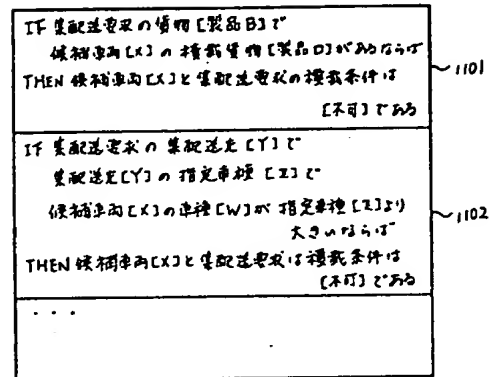 IF 集配送要求の貨物[製品B]で
候補車両[X]の積載貨物[製品D]があるならば
THEN 候補車両[X]と集配送要求の積載条件は
[不可]である
1101
IF 集配送要求の集配送先[Y]で
集配送先[Y]の指定車種[Z]で
候補車両[X]の車種[W]が指定車種[Z]より
大きいならば
THEN 候補車両[X]と集配送要求は積載条件は
[不可]である
1102
・・・